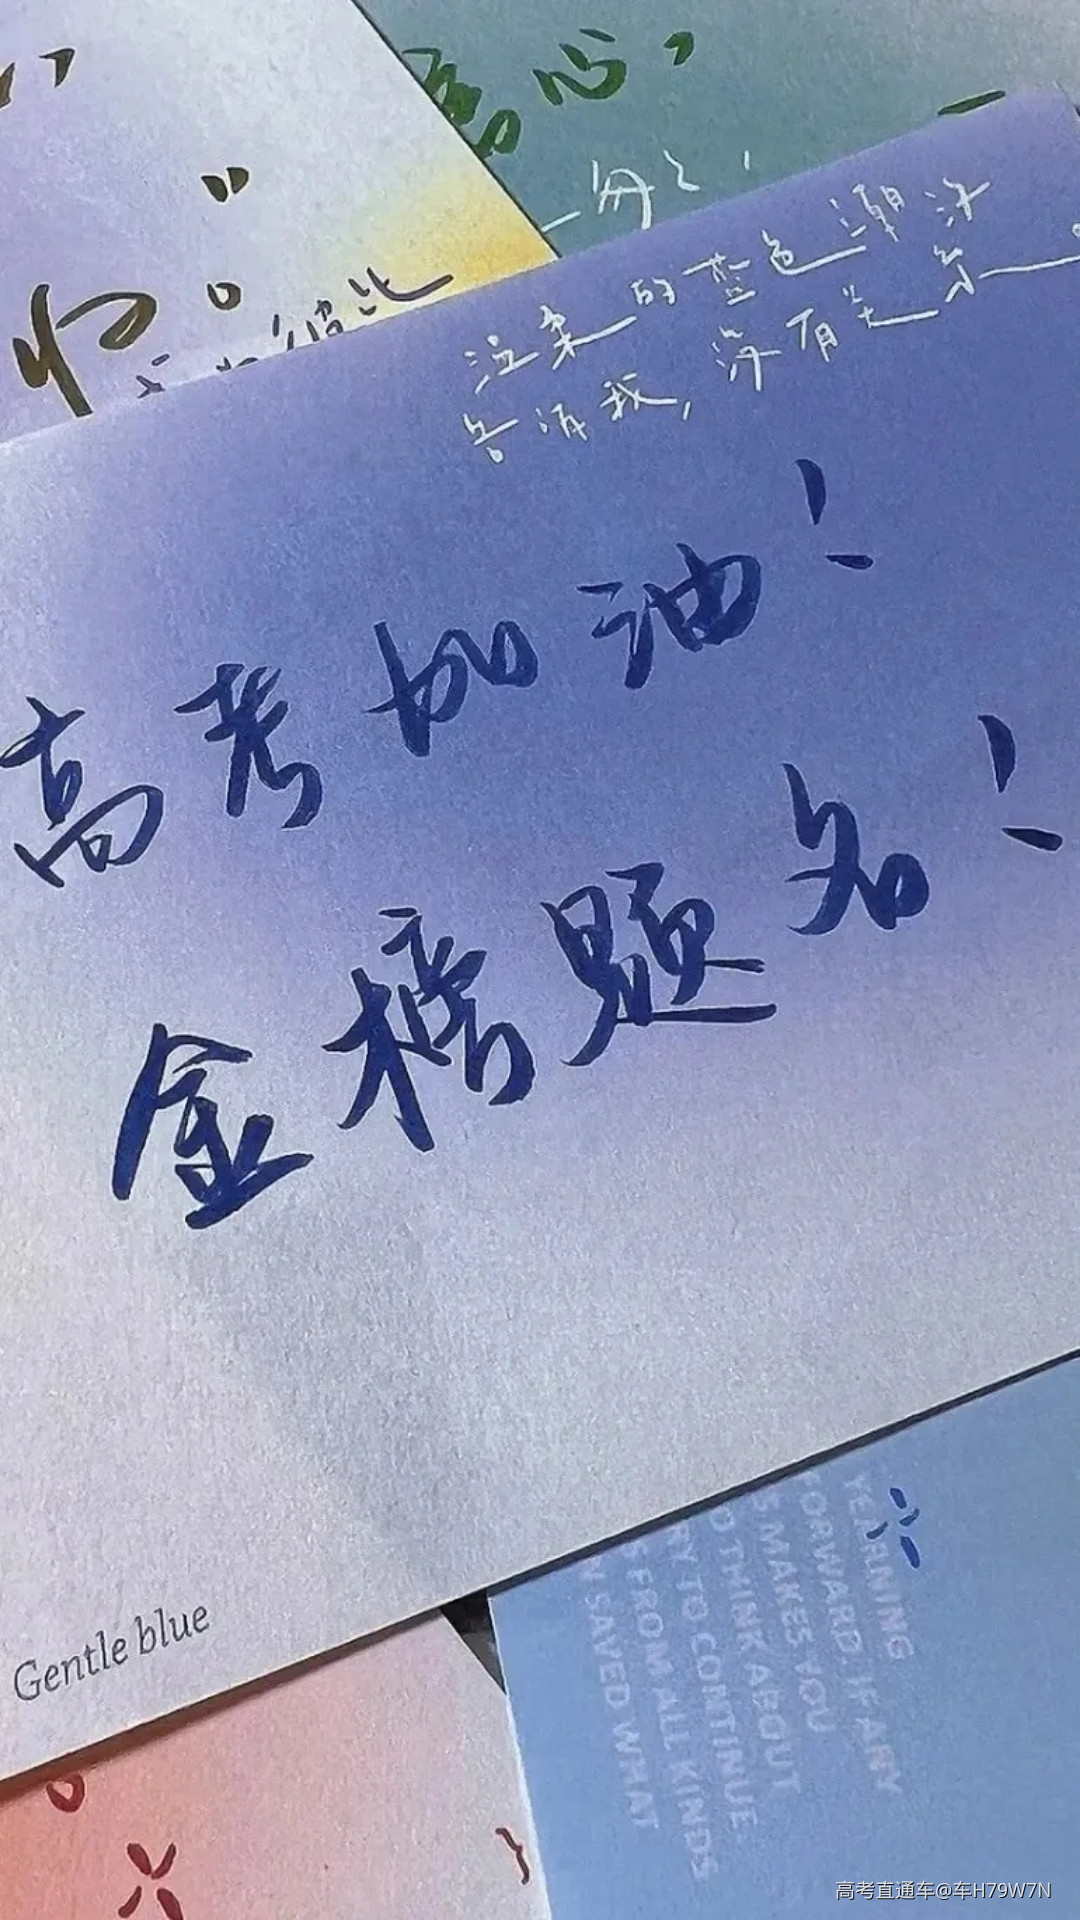 心,
一每
归
彼此
温柔的蓝色潮汐
告诉我,没有关系——。
高考加油!
金榜题名!
Gentle blue
YEARNING
FORWARD. IF ANY
S MAKES YOU
O THINK ABOUT
RY TO CONTINUE.
FROM ALL KINDS
N SAVED WHAT
高考直通车@车H79W7N